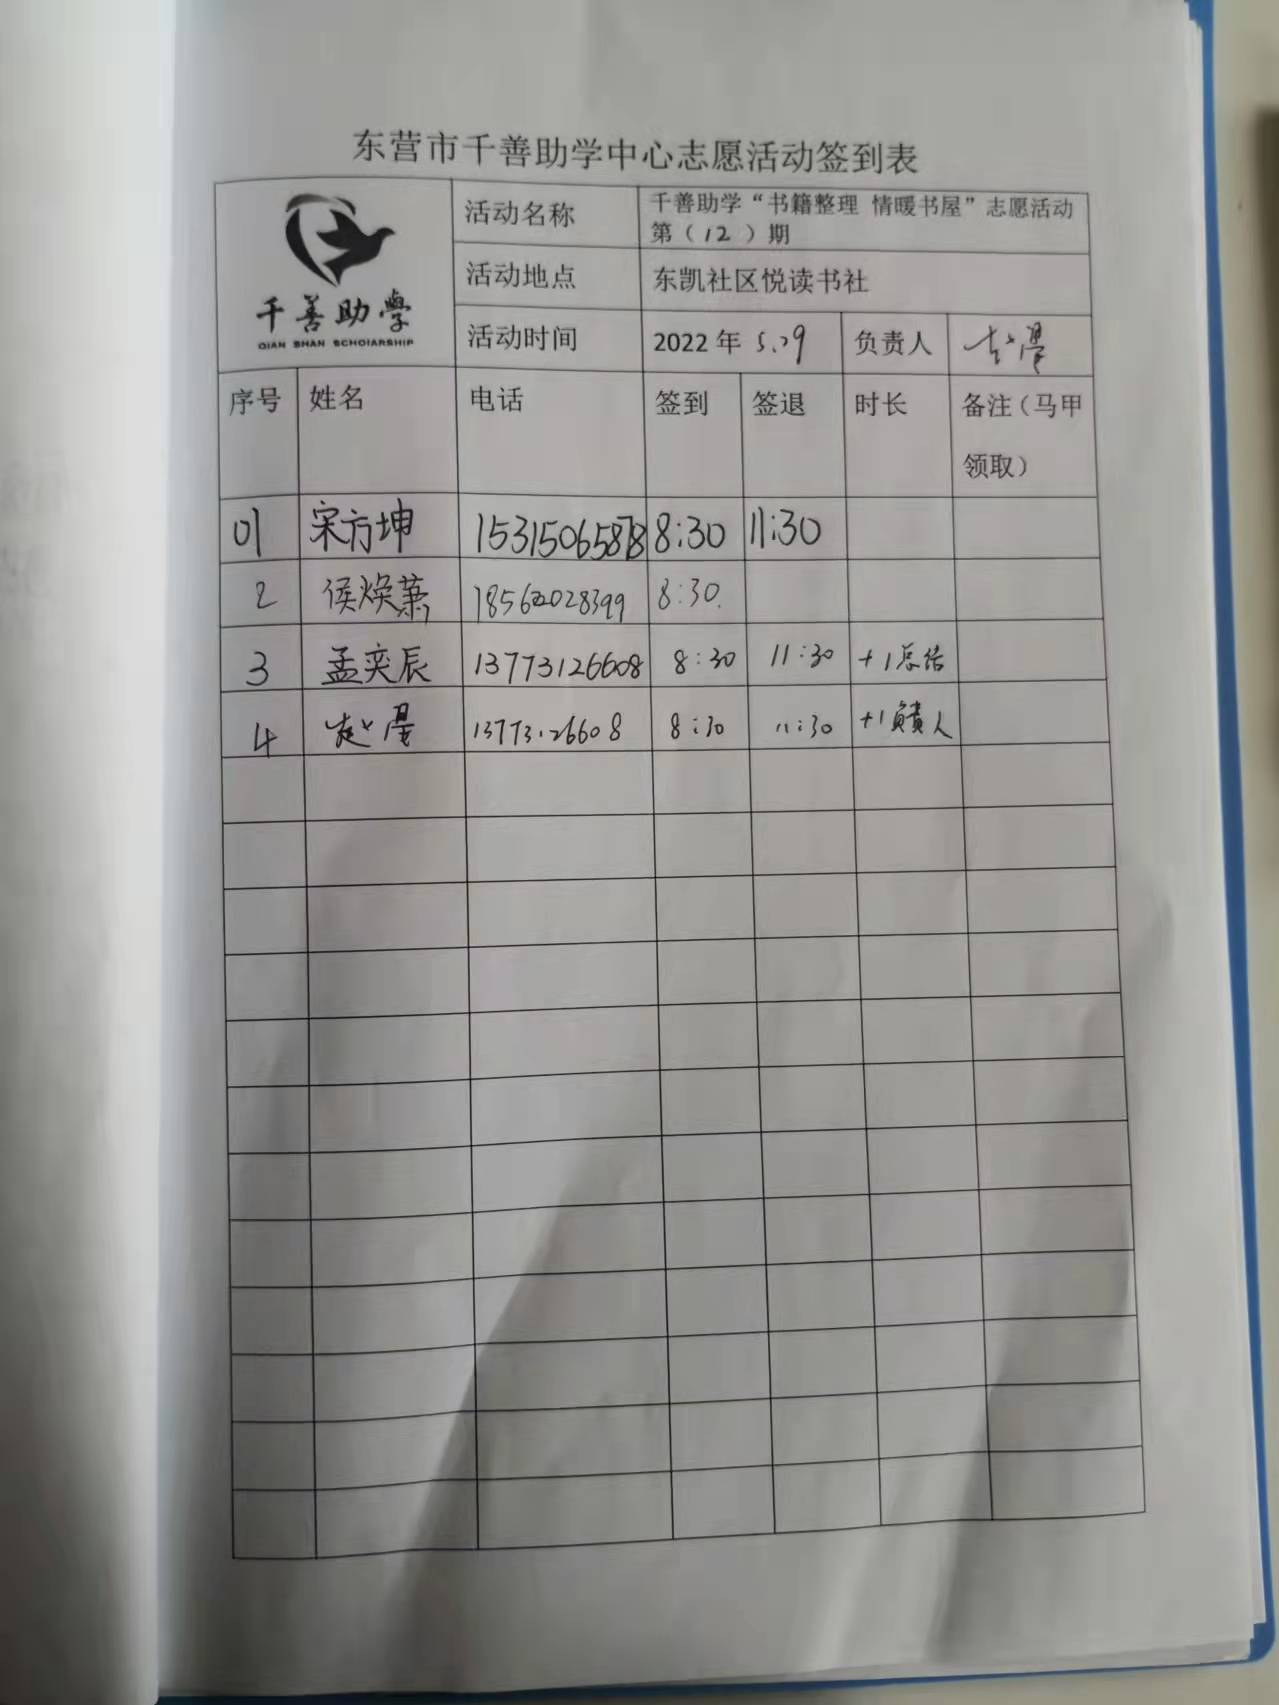 东营市千善助学中心志愿活动签到表
千善助學
QIAN SHAN SCHOIARSHIP
活动名称 千善助学“书籍整理 情暖书屋”志愿活动
第（12）期
活动地点 东凯社区悦读书社
活动时间 2022年 5.29 负责人
序号 姓名 电话 签到 签退 时长 备注（马甲
领取）
01 宋方坤 15315065878 8:30 11:30
2 侯焕 8:30.
3 孟奕辰 13773126608 8:30 11:30 +1总结
4 赵 13773126608 8:30 11:30 +1負責人